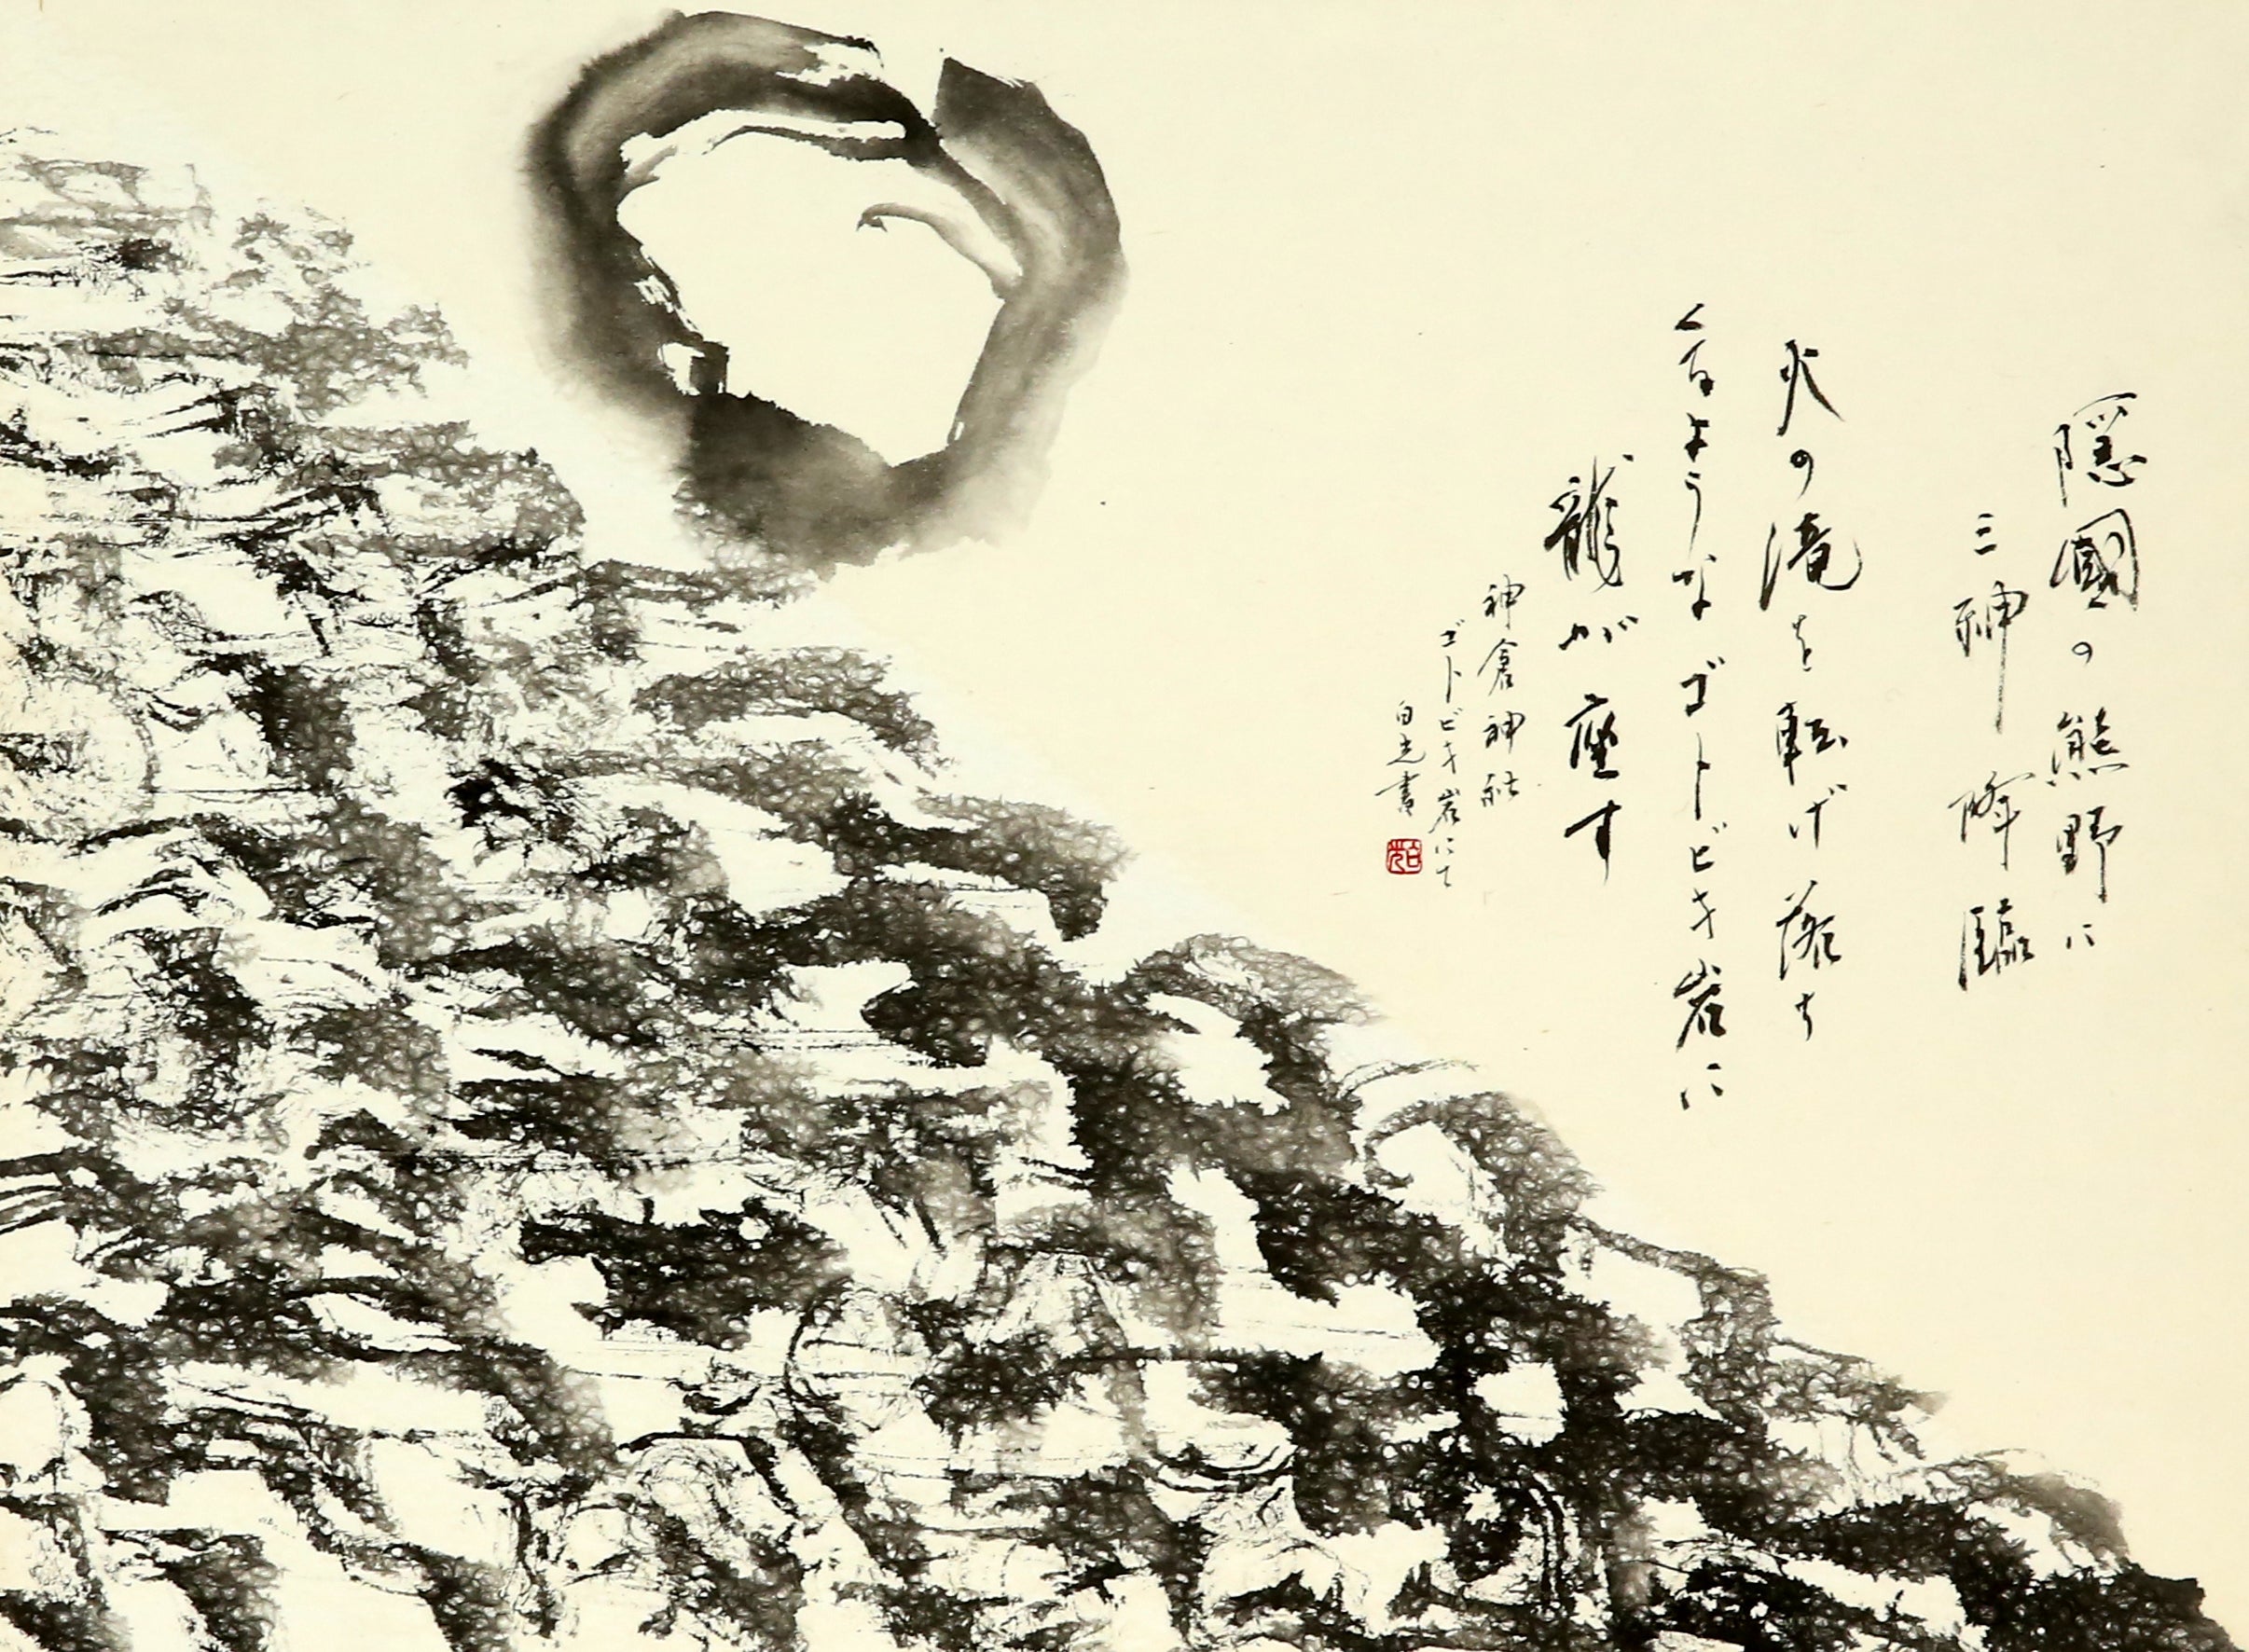 隠國の熊野に
三神降臨
火の滝を転げ落ち
ようなゴトビキ岩に
龍が座す
神倉神社
ゴトビキ岩にて
白光書